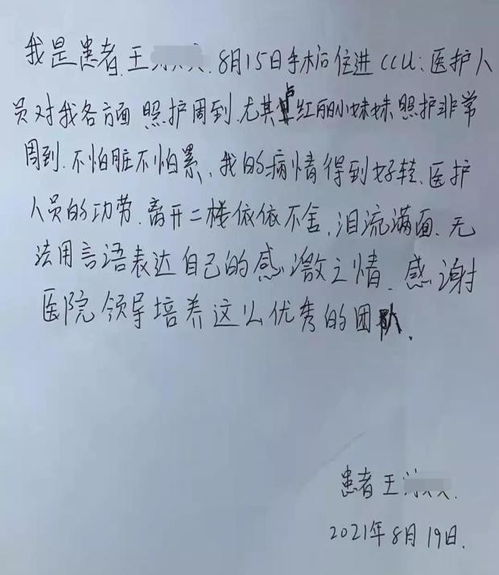 我是患者.王 8月15日手术后住进CCU.医护人
员对我各方面照护周到.尤其卓红丽小妹妹照护非常
周到.不怕脏不怕累、我的病情得到好转.医护
人员的功劳.离开二楼依依不舍,泪流满面.无
法用言语表达自己的感激之情.感谢
医院领导培养这么优秀的团队.
患者王
2021年8月19日.